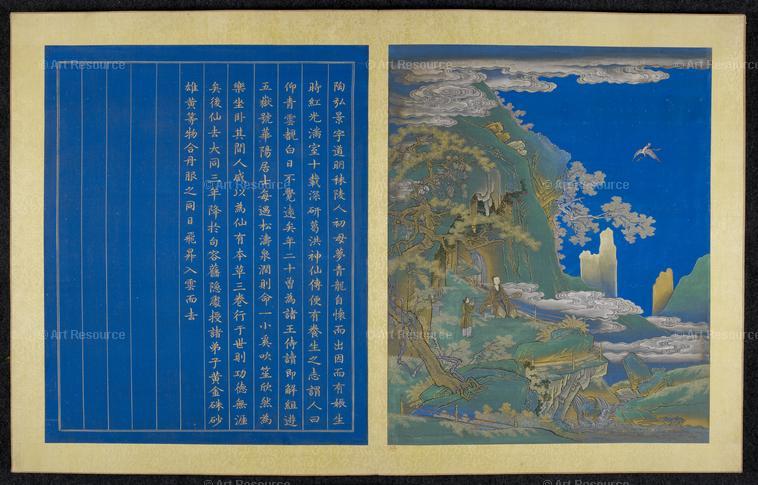 陶弘景字道明秣陵人初母夢青龍自懷而出因而有娠生
時紅光滿室十歲深研葛洪神仙傳便有養生之志謂人曰
仰青雲覩白日不覺遠矣年二十曾為諸王侍讀即解組遊
五嶽號華陽居士每遇松濤泉澗則命一小奚吹笙欣然為
樂坐卧其間人咸以為仙有本草三卷行于世則功德無涯
矣後仙去大同三年降於句容舊隱處授諸弟子黃金硃砂
雄黃等物合丹服之同日飛昇入雲而去
© Art Resource
© Art Resource
© Art Resource
© Art Resource
© Art Resource
© Art Resource
© Art Resource
© Art Resource
© Art Resource
© Art Resource
© Art Resource